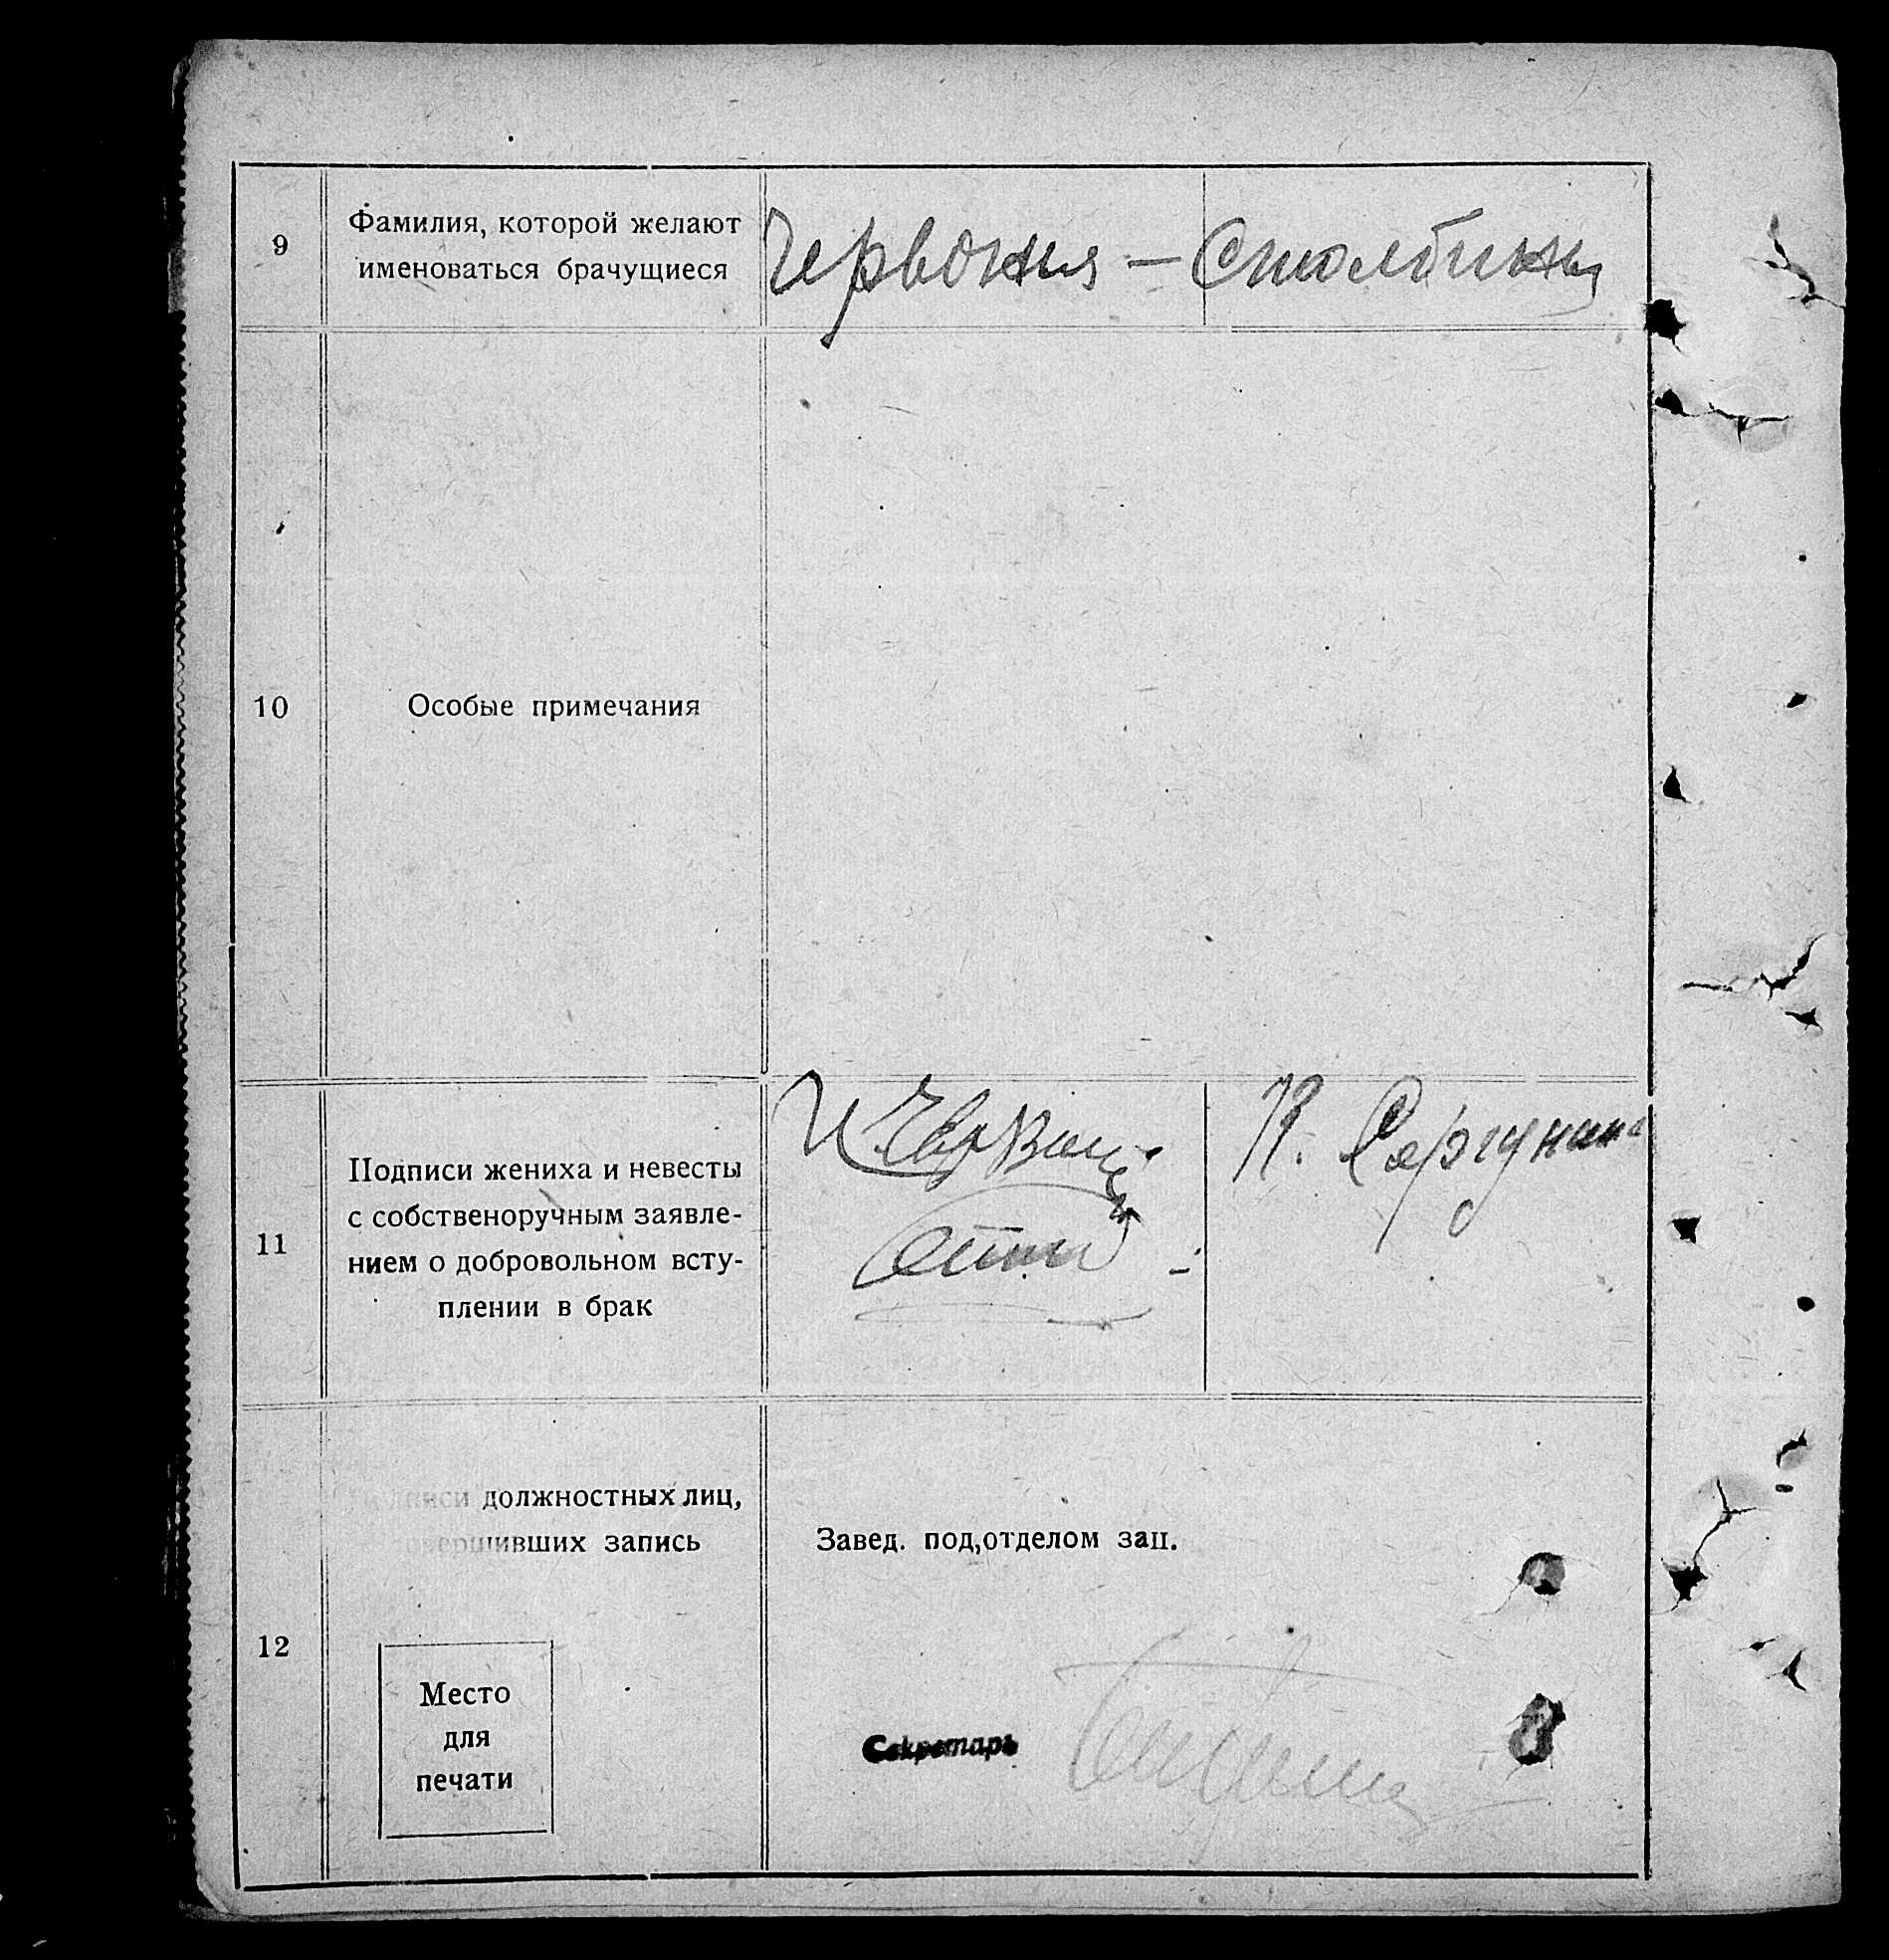 9
Фамилия, которой желают
именоваться брачущиеся
Червоння — Столбинны
10
Особые примечания
11
Подписи жениха и невесты
с собственоручным заявле-
нием о добровольном всту-
плении в брак
12
Подписи должностных лиц,
совершивших запись
Завед. под,отделом зап.
Секретарь
Место
для
печати